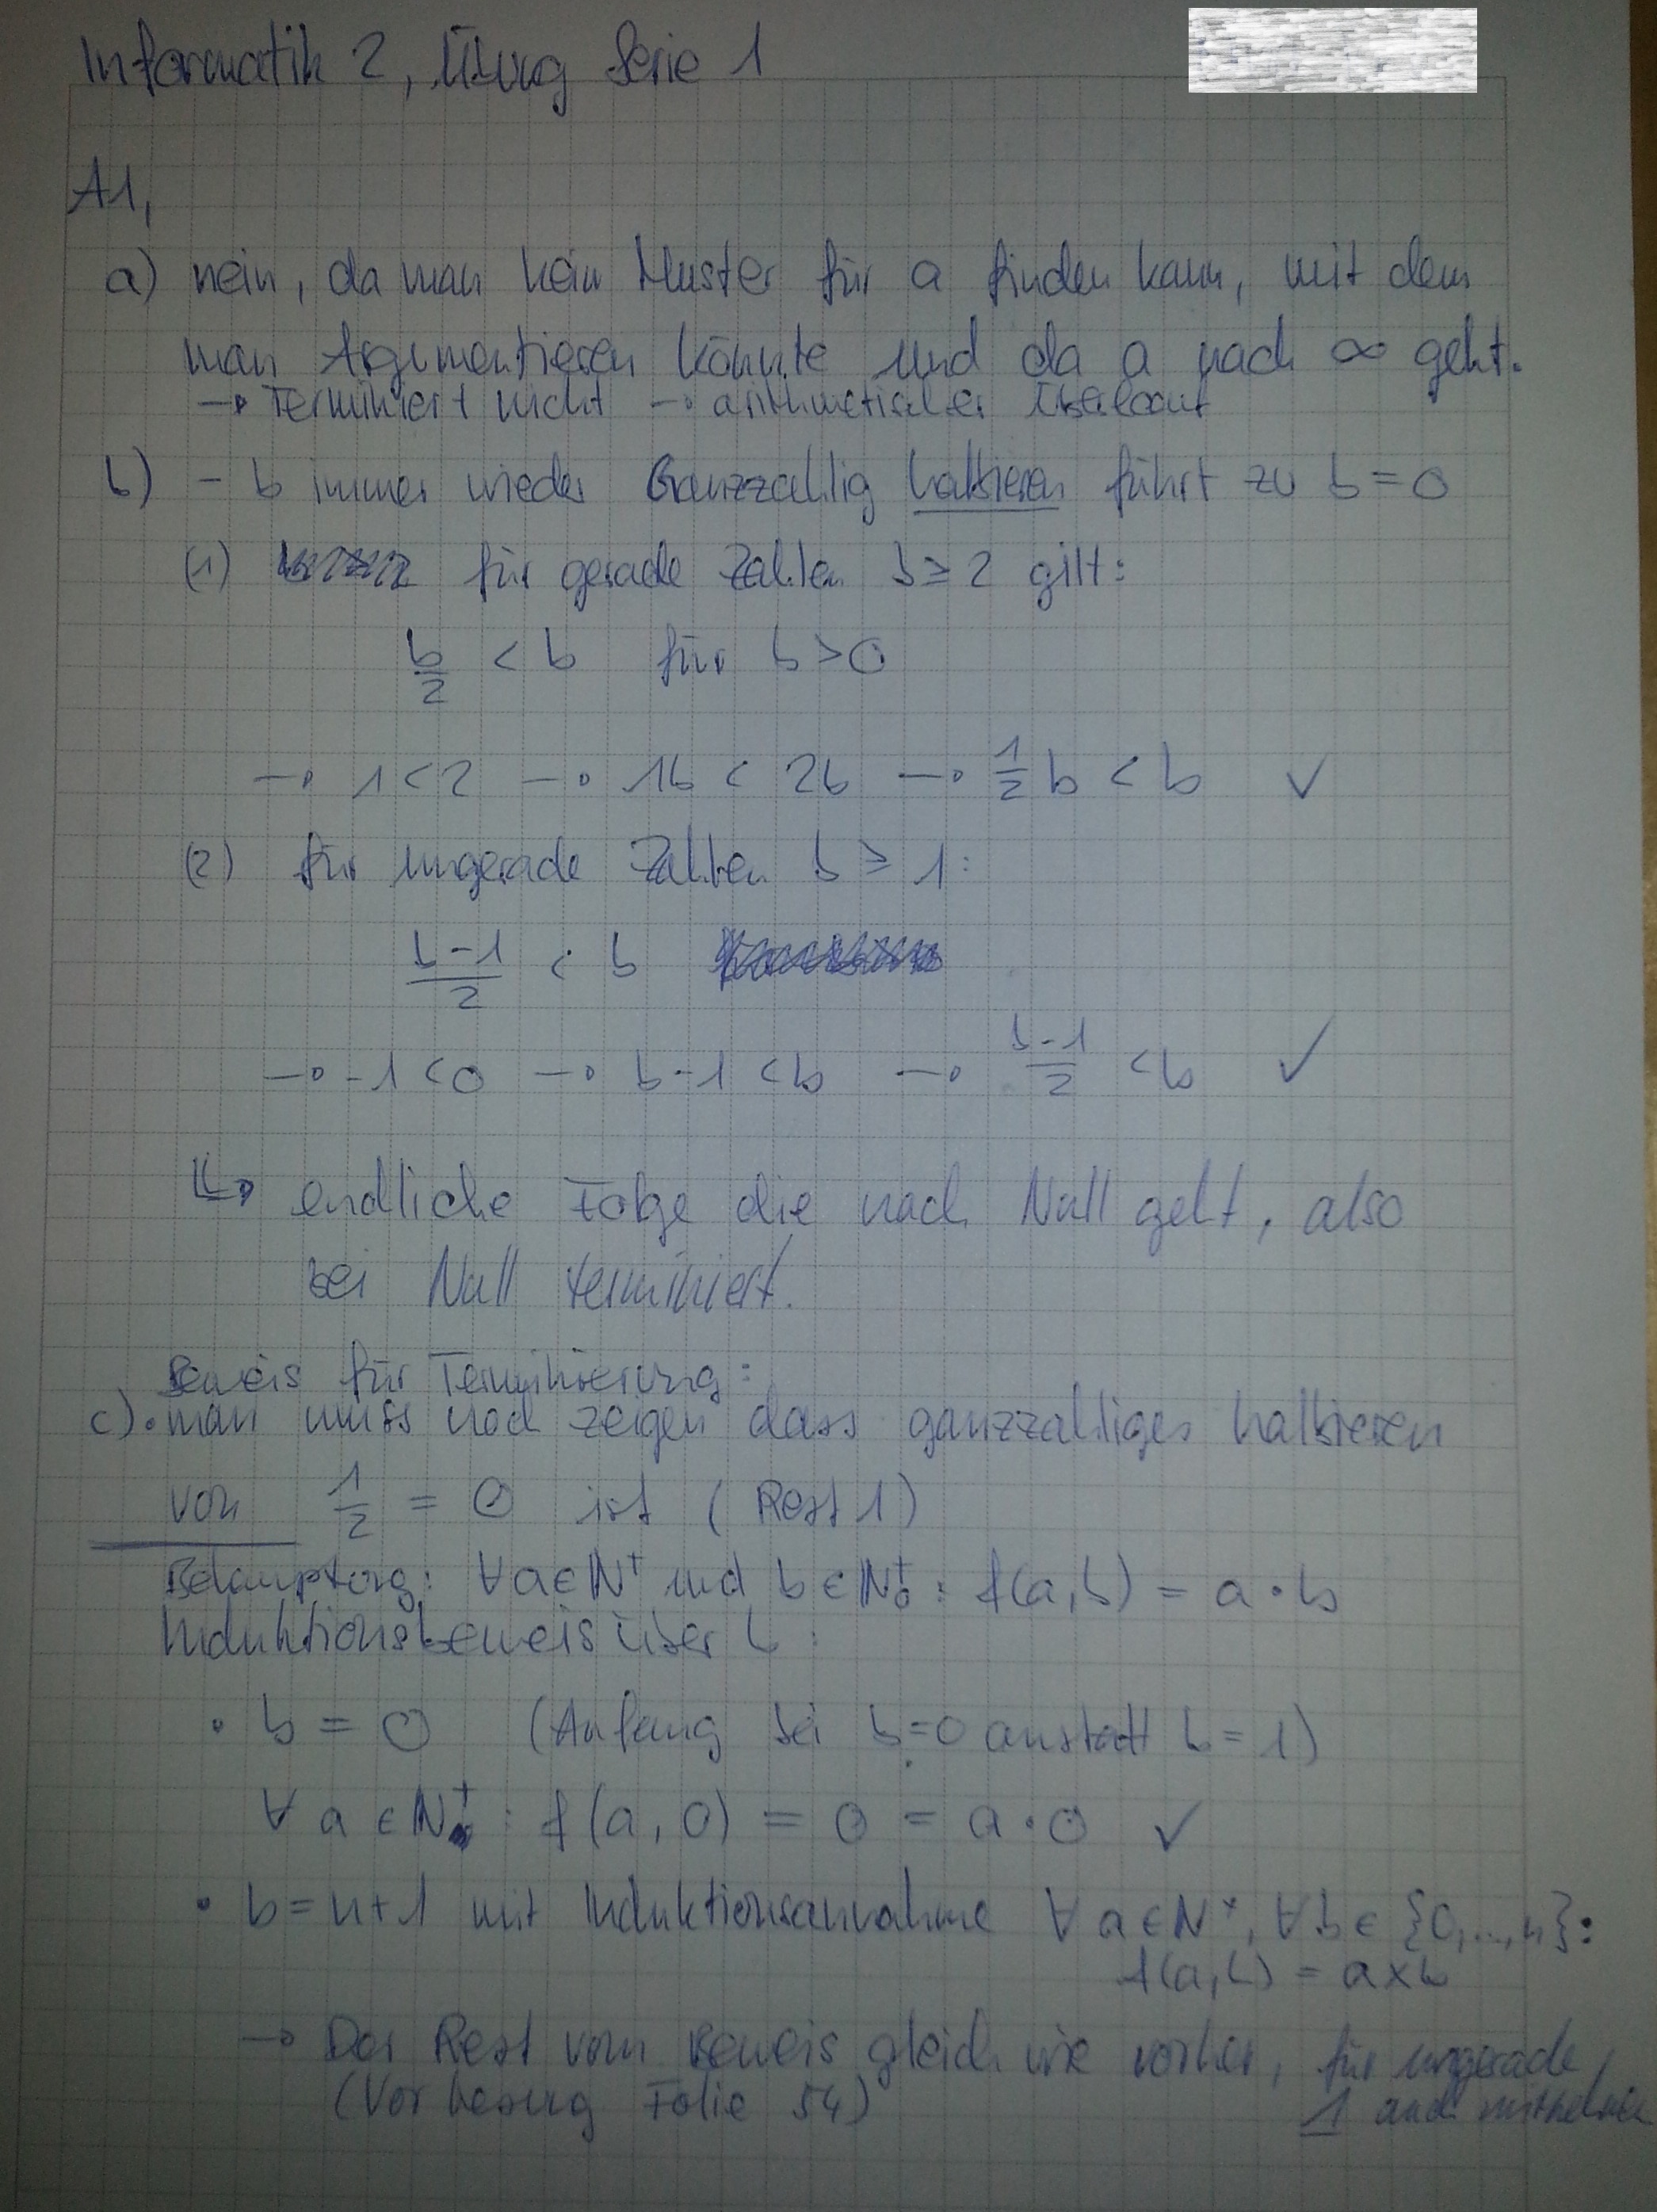 Informatik 2, Übung Serie 1
A1,
a) nein, da man kein Muster für a finden kann, mit dem
man Argumentieren könnte und da a nach ∞ geht.
→ Terminiert nicht → arithmetischer Überlauf
b) - b immer wieder Ganzzahlig halbieren führt zu b = 0
(1) für gerade Zahlen b ≥ 2 gilt:
b/2 < b für b > 0
→ 1 < 2 → 1b < 2b → 1/2 b < b ✓
(2) für ungerade Zahlen b ≥ 1:
(b-1)/2 < b
→ -1 < 0 → b-1 < b → (b-1)/2 < b ✓
↳ endliche Folge die nach Null geht, also
bei Null terminiert.
Beweis für Terminierung:
c) • man muss noch zeigen dass ganzzahliges halbieren
von 1/2 = 0 ist (Rest 1)
Behauptung: ∀ a ∈ N⁺ und b ∈ N₀⁺ : f(a,b) = a · b
Induktionsbeweis über b:
• b = 0 (Anfang bei b=0 anstatt b = 1)
∀ a ∈ N⁺ : f(a, 0) = 0 = a · 0 ✓
• b = n+1 mit Induktionsannahme ∀ a ∈ N⁺, ∀ b ∈ {0,...,n}:
f(a,b) = a x b
→ Der Rest vom Beweis gleich wie vorher, für ungerade
(Vorlesung Folie 54) 1 auch